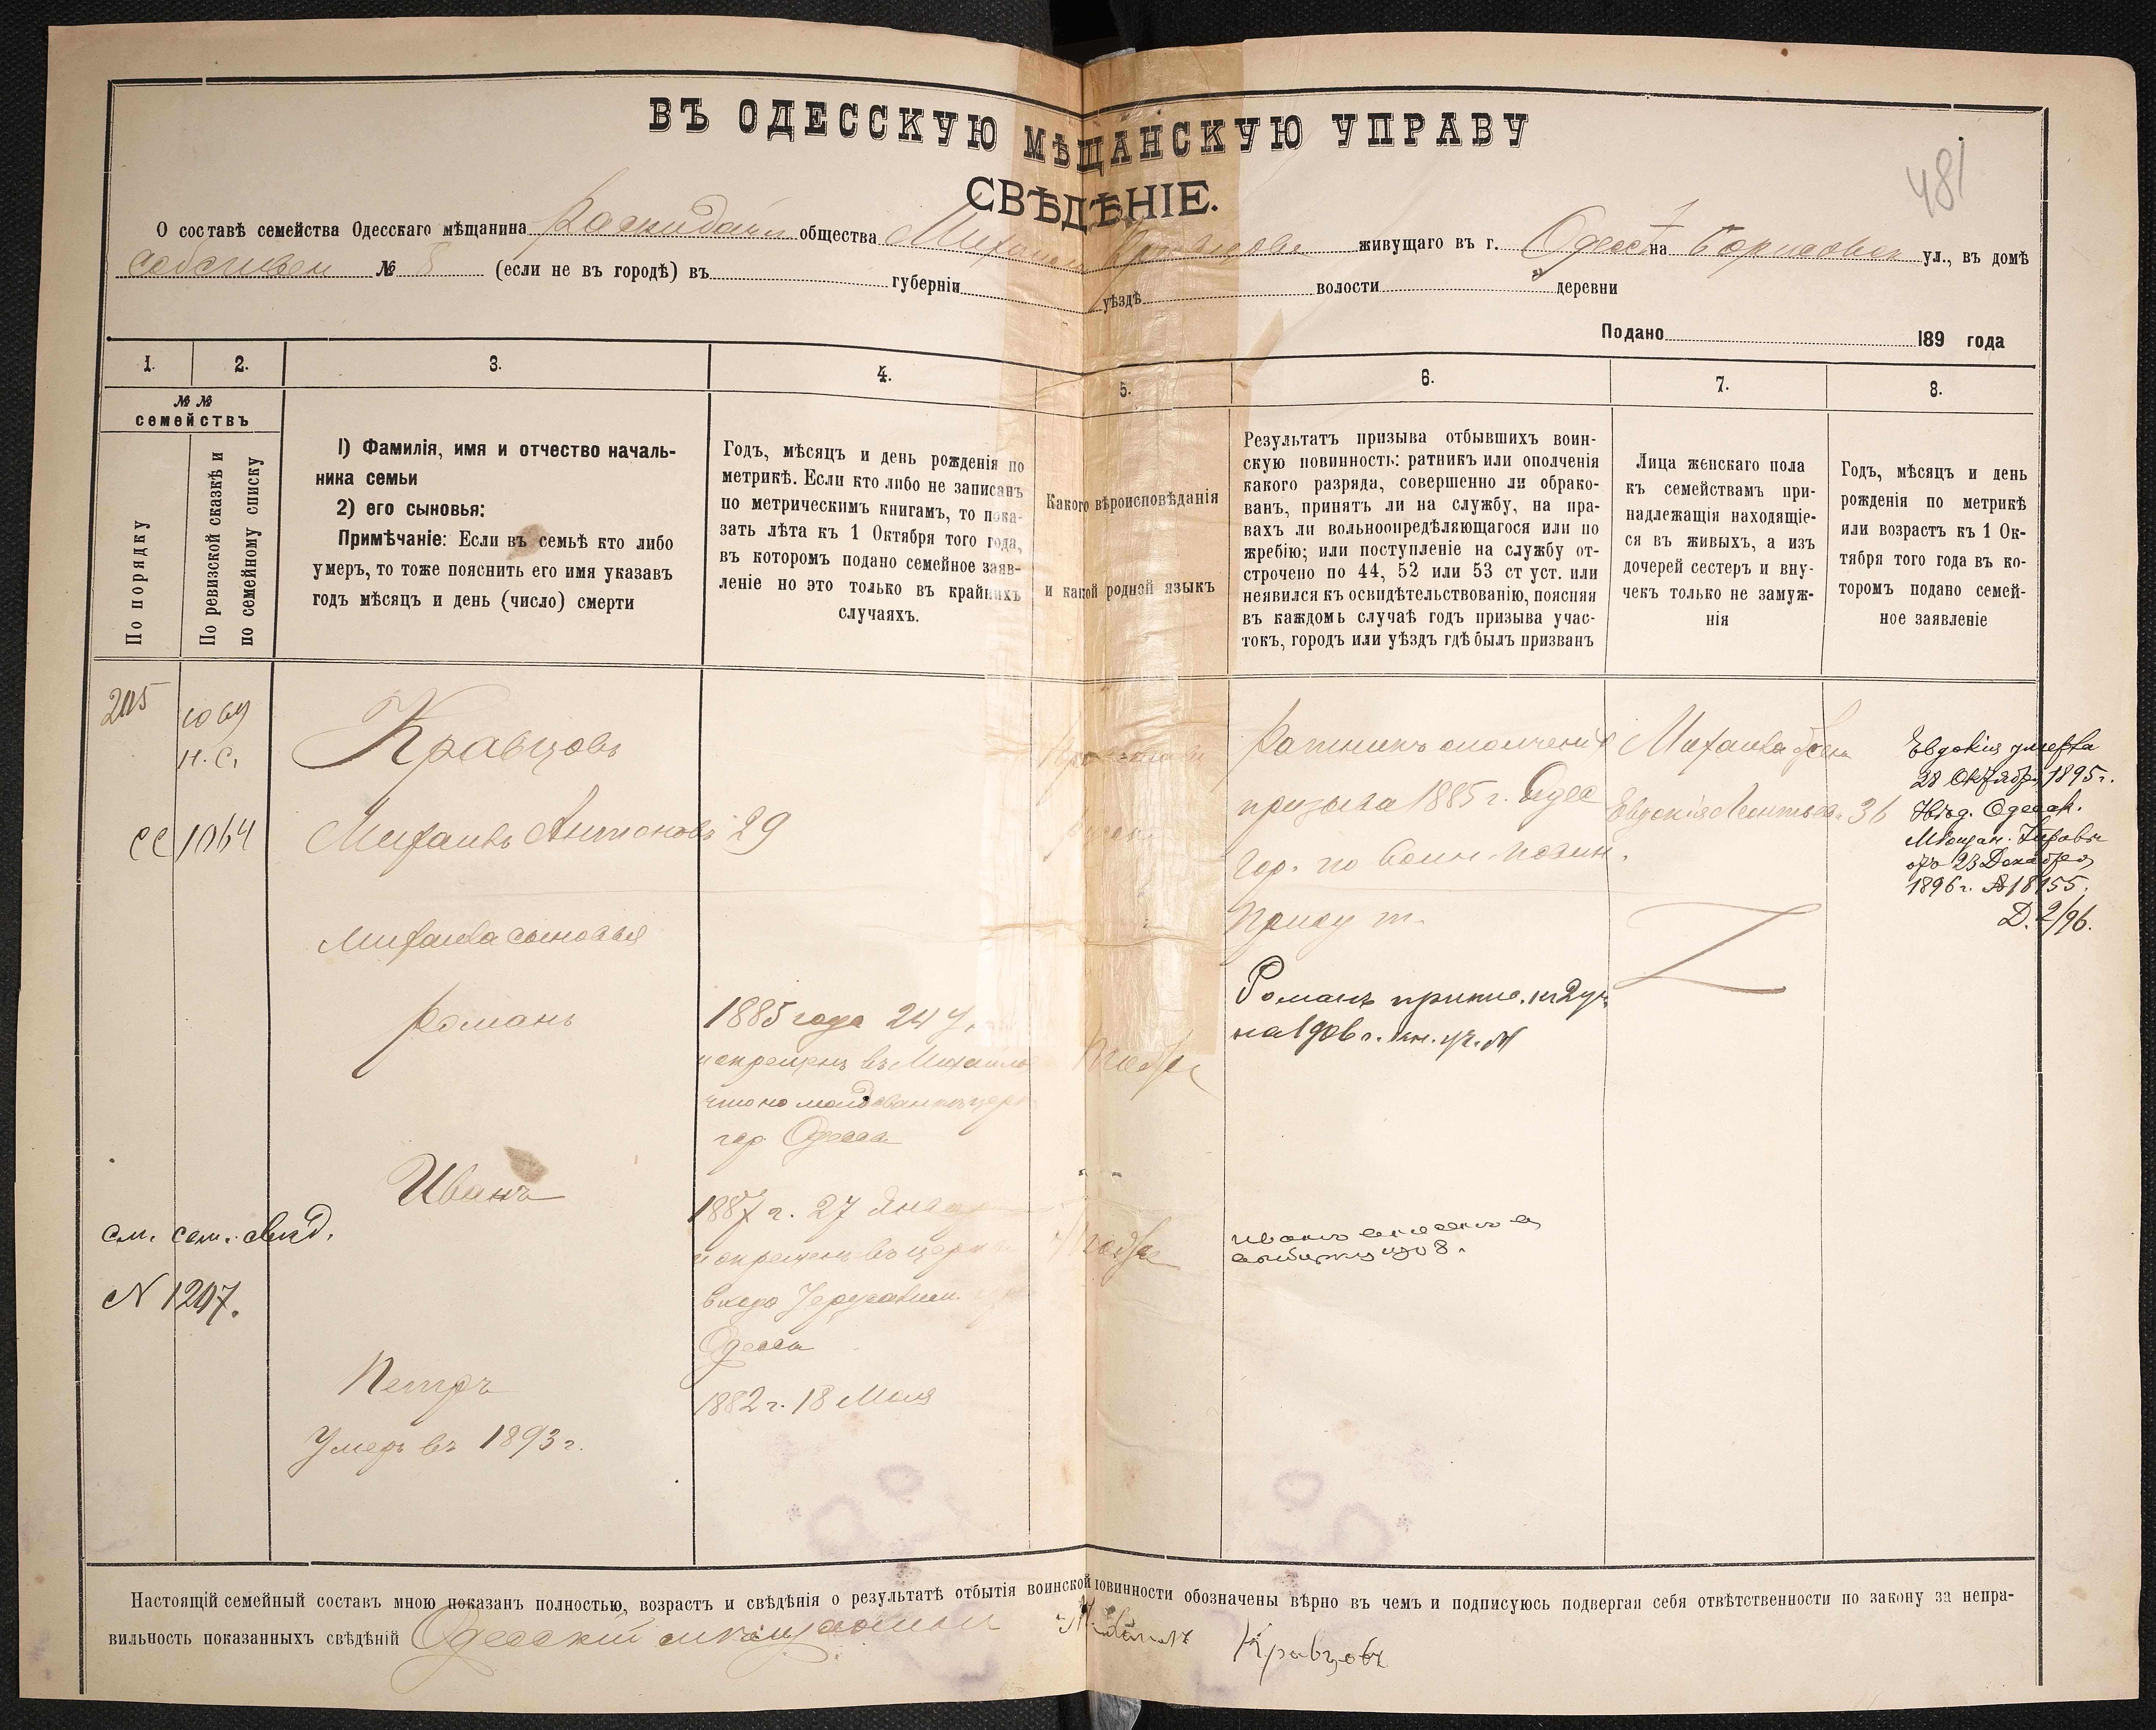 ВЪ ОДЕССКУЮ МѢЩАНСКУЮ УПРАВУ
481
СВѢДѢНІЕ.
О составѣ семейства Одесскаго мѣщанина общества Михаила Кравцова живущаго въ г. Одессѣ на ул., въ домѣ
собствен № 8 (если не въ городѣ) въ губерніи уѣздѣ волости деревни
Подано 189 года
1. 2. 3. 4. 5. 6. 7. 8.
№ №
семействъ
По порядку
По ревизской сказкѣ и
по семейному списку
1) Фамилія, имя и отчество началь-
ника семьи
2) его сыновья:
Примѣчаніе: Если въ семьѣ кто либо
умеръ, то тоже пояснить его имя указавъ
годъ мѣсяцъ и день (число) смерти
Годъ, мѣсяцъ и день рожденія по
метрикѣ. Если кто либо не записанъ
по метрическим книгамъ, то пока-
зать лѣта къ 1 Октября того года,
въ котором подано семейное заяв-
леніе но это только въ крайнихъ
случаяхъ.
Какого вѣроисповѣданія
и какой родной языкъ
Результатъ призыва отбывшихъ воин-
скую повинность: ратникъ или ополченія
какого разряда, совершенно ли обрако-
ванъ, принятъ ли на службу, на пра-
вахъ ли вольноопредѣляющагося или по
жребію; или поступленіе на службу от-
строчено по 44, 52 или 53 ст уст. или
неявился къ освидѣтельствованію, поясняя
въ каждомъ случаѣ годъ призыва учас-
токъ, городъ или уѣздъ гдѣ былъ призванъ
Лица женскаго пола
къ семействамъ при-
надлежащія находящіе-
ся въ живыхъ, а изъ
дочерей сестеръ и вну-
чекъ только не замуж-
нія
Годъ, мѣсяцъ и день
рожденія по метрикѣ
или возрастъ къ 1 Ок-
тября того года въ ко-
торомъ подано семей-
ное заявленіе
205
н. с.
Кравцовъ
Ратникъ ополченія
Михаила жена
1064
Михаилъ Антоновъ 29
призыва 1885 г. Одес
Гор. по воин. повин.
Присут.
Евдокія Леонтьева 36
Евдокія умерла
28 Октября 1895 г.
Одесск.
Мѣщан. Управы
отъ 23 Декабря
1896 г. № 18155.
Д. 2/96.
Михаила сыновья
Романъ
1885 года
и окрещенъ въ Михайло
гор. Одесса
Романъ
на 1906 г.
Иванъ
1887 г. 27 Янва
и окрещенъ въ церкви
Одесса
см. сем. свѣд.
N 1207.
Петръ
1882 г. 18 Мая
Умеръ въ 1893 г.
Настоящій семейный составъ мною показанъ полностью, возрастъ и свѣдѣнія о результатѣ отбытія воинской повинности обозначены вѣрно въ чемъ и подписуюсь подвергая себя отвѣтственности по закону за непра-
вильность показанныхъ свѣдѣній Одесскій мѣщанинъ Михаилъ Кравцовъ